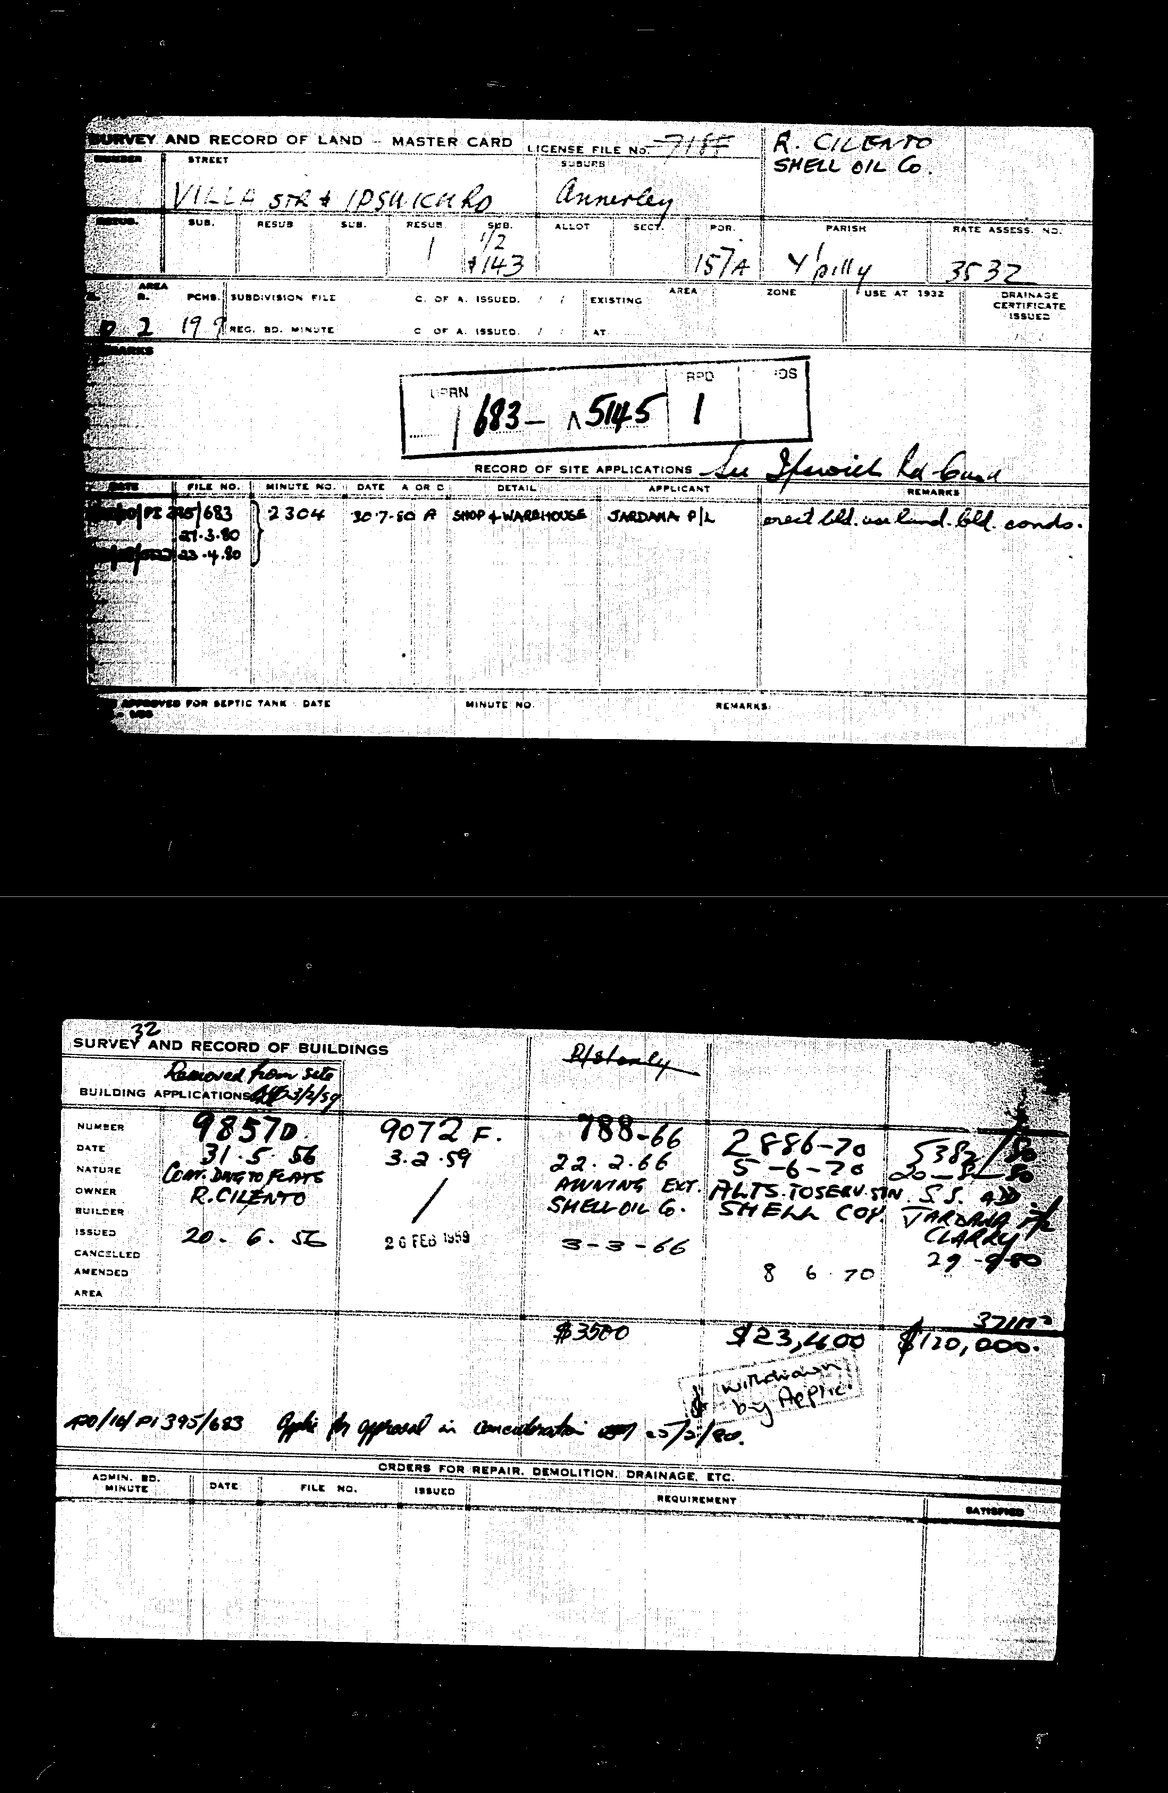 SURVEY AND RECORD OF LAND - MASTER CARD LICENSE FILE No. 718F
R. CILENTO
SHELL OIL Co.
NUMBER STREET SUBURB
VILLA STR & IPSWICH RD Annerley
RESUB. SUB. RESUB SUB. RESUB. SUB. ALLOT SECT. POR. PARISH RATE ASSESS. NO.
1 1/2 $143 157A Y'pilly 3532
AREA
R. PCHS. SUBDIVISION FILE C. OF A. ISSUED. / / EXISTING AREA ZONE USE AT 1932 DRAINAGE CERTIFICATE ISSUED
0 2 19.9 REG. BD. MINUTE C OF A. ISSUED. / / AT
REMARKS
UPRN RPD
683 - A5145 1
RECORD OF SITE APPLICATIONS See Ipswich Rd Card
DATE FILE NO. MINUTE NO. DATE A OR D DETAIL APPLICANT REMARKS
/683 2304 30.7.80 A SHOP & WAREHOUSE JARDANA P/L erect bld. use land. bld. conds.
27.3.80
23.4.80
APPROVED FOR SEPTIC TANK DATE MINUTE NO. REMARKS:
32
SURVEY AND RECORD OF BUILDINGS
Removed from Site
BUILDING APPLICATIONS 3/2/59
NUMBER 9857D 9072 F. 788-66 2886-70 5382/80
DATE 31.5.56 3.2.59 22.2.66 5-6-70 20-8-80
NATURE CONT. DWG TO FLATS AWNING EXT. ALTS. TO SERV. STN. S.S. ADD
OWNER R. CILENTO / SHELL OIL Co. SHELL COY. JARDANA P/L
BUILDER CLARRY
ISSUED 20.6.56 26 FEB 1959 3-3-66 29-9-80
CANCELLED
AMENDED 8 6 70
AREA
371m²
$3500 $23,400 $120,000.
withdrawn
by Applic.
/PI 395/683 Applic for approval in consideration
ORDERS FOR REPAIR. DEMOLITION. DRAINAGE. ETC.
ADMIN. BD. MINUTE DATE FILE NO. ISSUED REQUIREMENT SATISFIED